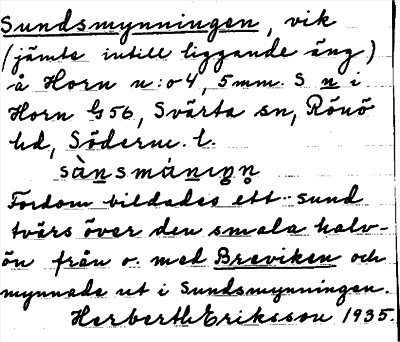 Sundsmynningen, vik
(jämte intill liggande äng)
å Horn n:o 4, 5mm. S n i
Horn G56, Svärta sn, Rönö
hd, Söderm. l.
Fordom bildades ett sund
tvärs över den smala halv-
ön från o. med Breviken och
mynnade ut i Sundsmynningen.
Herbert Eriksson 1935.